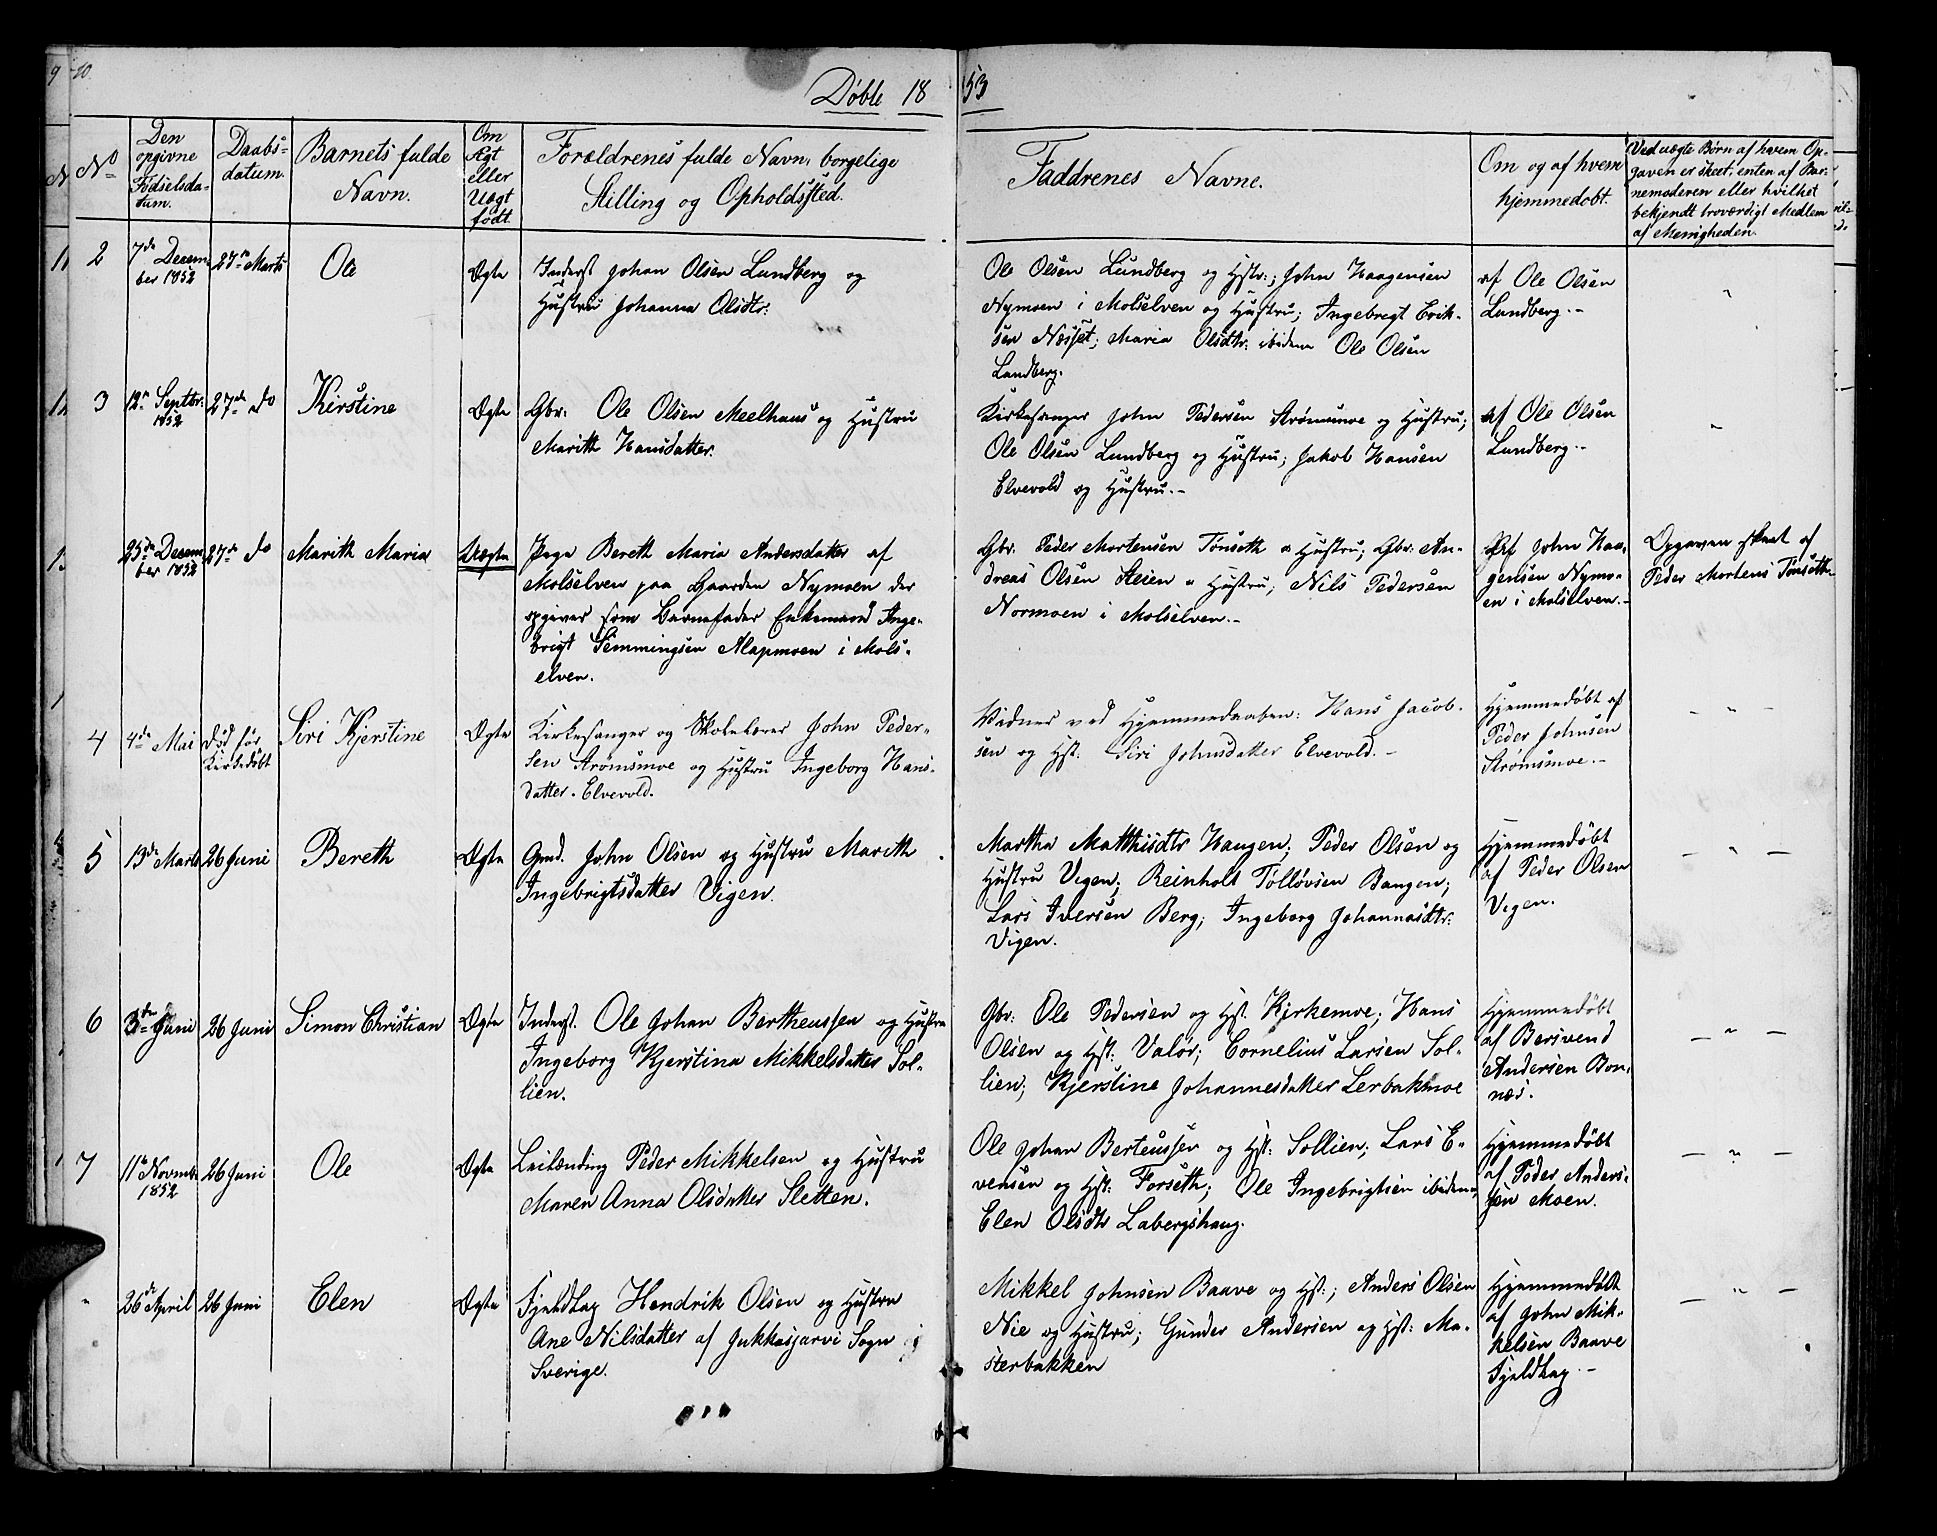 10.
Døbte 1853
No
Den opgivne Fødselsdatum.
Daabsdatum.
Barnets fulde Navn.
Om Ægt eller Uægt født.
Forældrenes fulde Navn, borgelige Stilling og Opholdssted.
Faddrenes Navne.
Om og af hvem hjemmedøbt.
Ved uægte Børn af hvem Opgaven er skeet, enten af Barnemoderen eller hvilket bekjendt troværdigt Medlem af Menigheden.
2
7de Decem-
ber 1852
27de Marts
Ole
Ægte
Inderst Johan Olsen Lundberg og
Hustru Johanna Olsdtr:
Ole Olsen Lundberg og Hstr:; John Haagensen
Nymoen i Molselven og Hustru; Ingebregt Erik-
sen Næsset; Maria Olsdtr: ibidem Ole Olsen
Lundberg.
af Ole Olsen
Lundberg.-
"
3
12te Septbr:
1852
27de do
Kirstine
Ægte
Gbr: Ole Olsen Meelhaus og Hustru
Marith Hansdatter.
Kirkesanger John Pedersen Strømsmoe og Hustru;
Ole Olsen Lundberg og Hustru; Jakob Hansen
Elvevold og Hustru.-
af Ole Olsen
Lundberg.-
"
25de Decem-
ber 1852
27de do
Marith Maria
Uægte
Pige Bereth Maria Andersdatter af
Molselven paa Gaarden Nymoen der
opgiver som Barnefader Enkemand Inge-
brigt Semmingsen Alapmoen i Mols-
elven.
Gbr. Peder Mortensen Tønseth o Hustru; Gbr: An-
dreas Olsen Steien o Hustru; Nils Pedersen
Normoen i Molselven.-
Af John Haa-
gensen Nymo-
en i Molselven.-
Opgaven skeet af
Peder Mortens Tønseth
4
4de Mai
Død før
Kirkedøbt
Siri Kjerstine
Ægte
Kirkesanger og Skolelærer John Peder-
sen Strømsmoe og Hustru Ingeborg Hans-
datter. Elvevold.
Vidner ved Hjemmedaaben: Hans Jacob-
sen og Hst: Siri Johnsdatter Elvevold.-
Hjemmedøbt af
Peder Johnsen
Strømsmoe.-
- " -
5
13de Marts
26 Juni
Bereth
Ægte
Gmd. John Olsen og Hustru Marith
Ingebrigtsdatter Vigen.
Martha Matthisdtr Haugen; Peder Olsen og
Hustru Vigen; Reinholt Tolløvsen Bangen;
Lars Iversen Berg; Ingeborg Johannasdtr:
Vigen.
Hjemmedøbt
af Peder Olsen
Vigen.
- " -
6
3die Juni
26 Juni
Simon Christian
Ægte
Inderst. Ole Johan Bertheussen og Hustru
Ingeborg Kjerstina Mikkelsdatter Sol-
lien.
Gbr: Ole Pedersen og Hst. Kjerkemoe; Hans
Olsen og Hst: Valør; Cornelius Larsen Sol-
lien; Kjerstine Johannesdatter Lerbakmoe
Hjemmedøbt
af Bersvend
Andersen Bon-
næs.
- " -
7
11te Novmbr
1852
26 Juni
Ole
Ægte
Leilænding Peder Mikkelsen og Hustru
Maren Anna Olsdatter Sletten.
Ole Johan Berteussen og Hst: Sollien; Lars E-
vensen og Hst: Forseth; Ole Ingebrigtsen ibidem,
Elen Olsdtr Labergshaug.
Hjemmedøbt
af Peder Anders-
sen Moen.
- " -
"
26de April
26 Juni
Elen
Ægte
Fjeldlap Hendrik Olsen og Hustru
Ane Nilsdatter af Jukkasjarvi Sogn i
Sverige.
Mikkel Johnsen Baave og Hst:; Anders Olsen
Nie og Hustru; Gunder Andersen og Hst: Ma-
sterbakken
Hjemmedøbt
af John Mik-
kelsen Baave
Fjeldlap.-
- " -